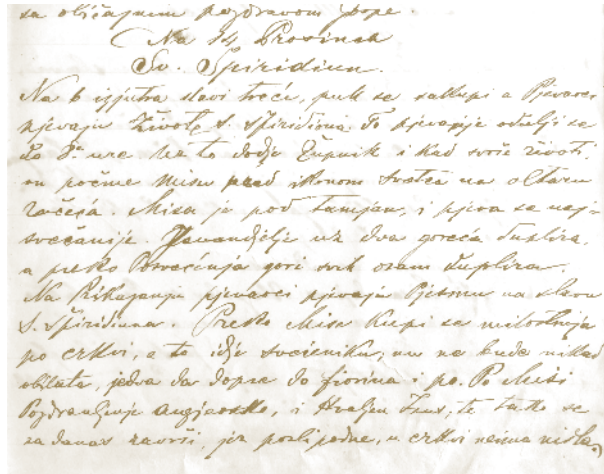 sa običajnim pozdravom pope.
Na 14 Prosinca
Sv. Spiridiun.
Na 6 izjutra slavi treću, puk se sakupi a Pjevaoci
pjevaju Živote S. Spiridiona. To pjevanje odulji se
do 8. ure. Uz to dodje Župnik i kad svrše životi
on počme Misu pred ikonom Svetca na oltaru
začesá. Misa je pod tamjan, i pjeva se naj-
svečanije. Evandjelje uz dva goreća duplira,
a preko Posvećenja gori svih osam duplira.
Na Prikazanju pjevaoci pjevaju Pjesmu na slavu
S. Spiridiuna. Preko Mise kupi se milostinja
po crkvi, a to idje svećeniku; nu ne bude nikad
obilata, jedva da dopre do fiorina i po. Po Misi
Pozdravljenje angjeosko, i Hvaljen Isus, te tako se
za danas završi, jer poslipodne, u crkvi neima ništa.